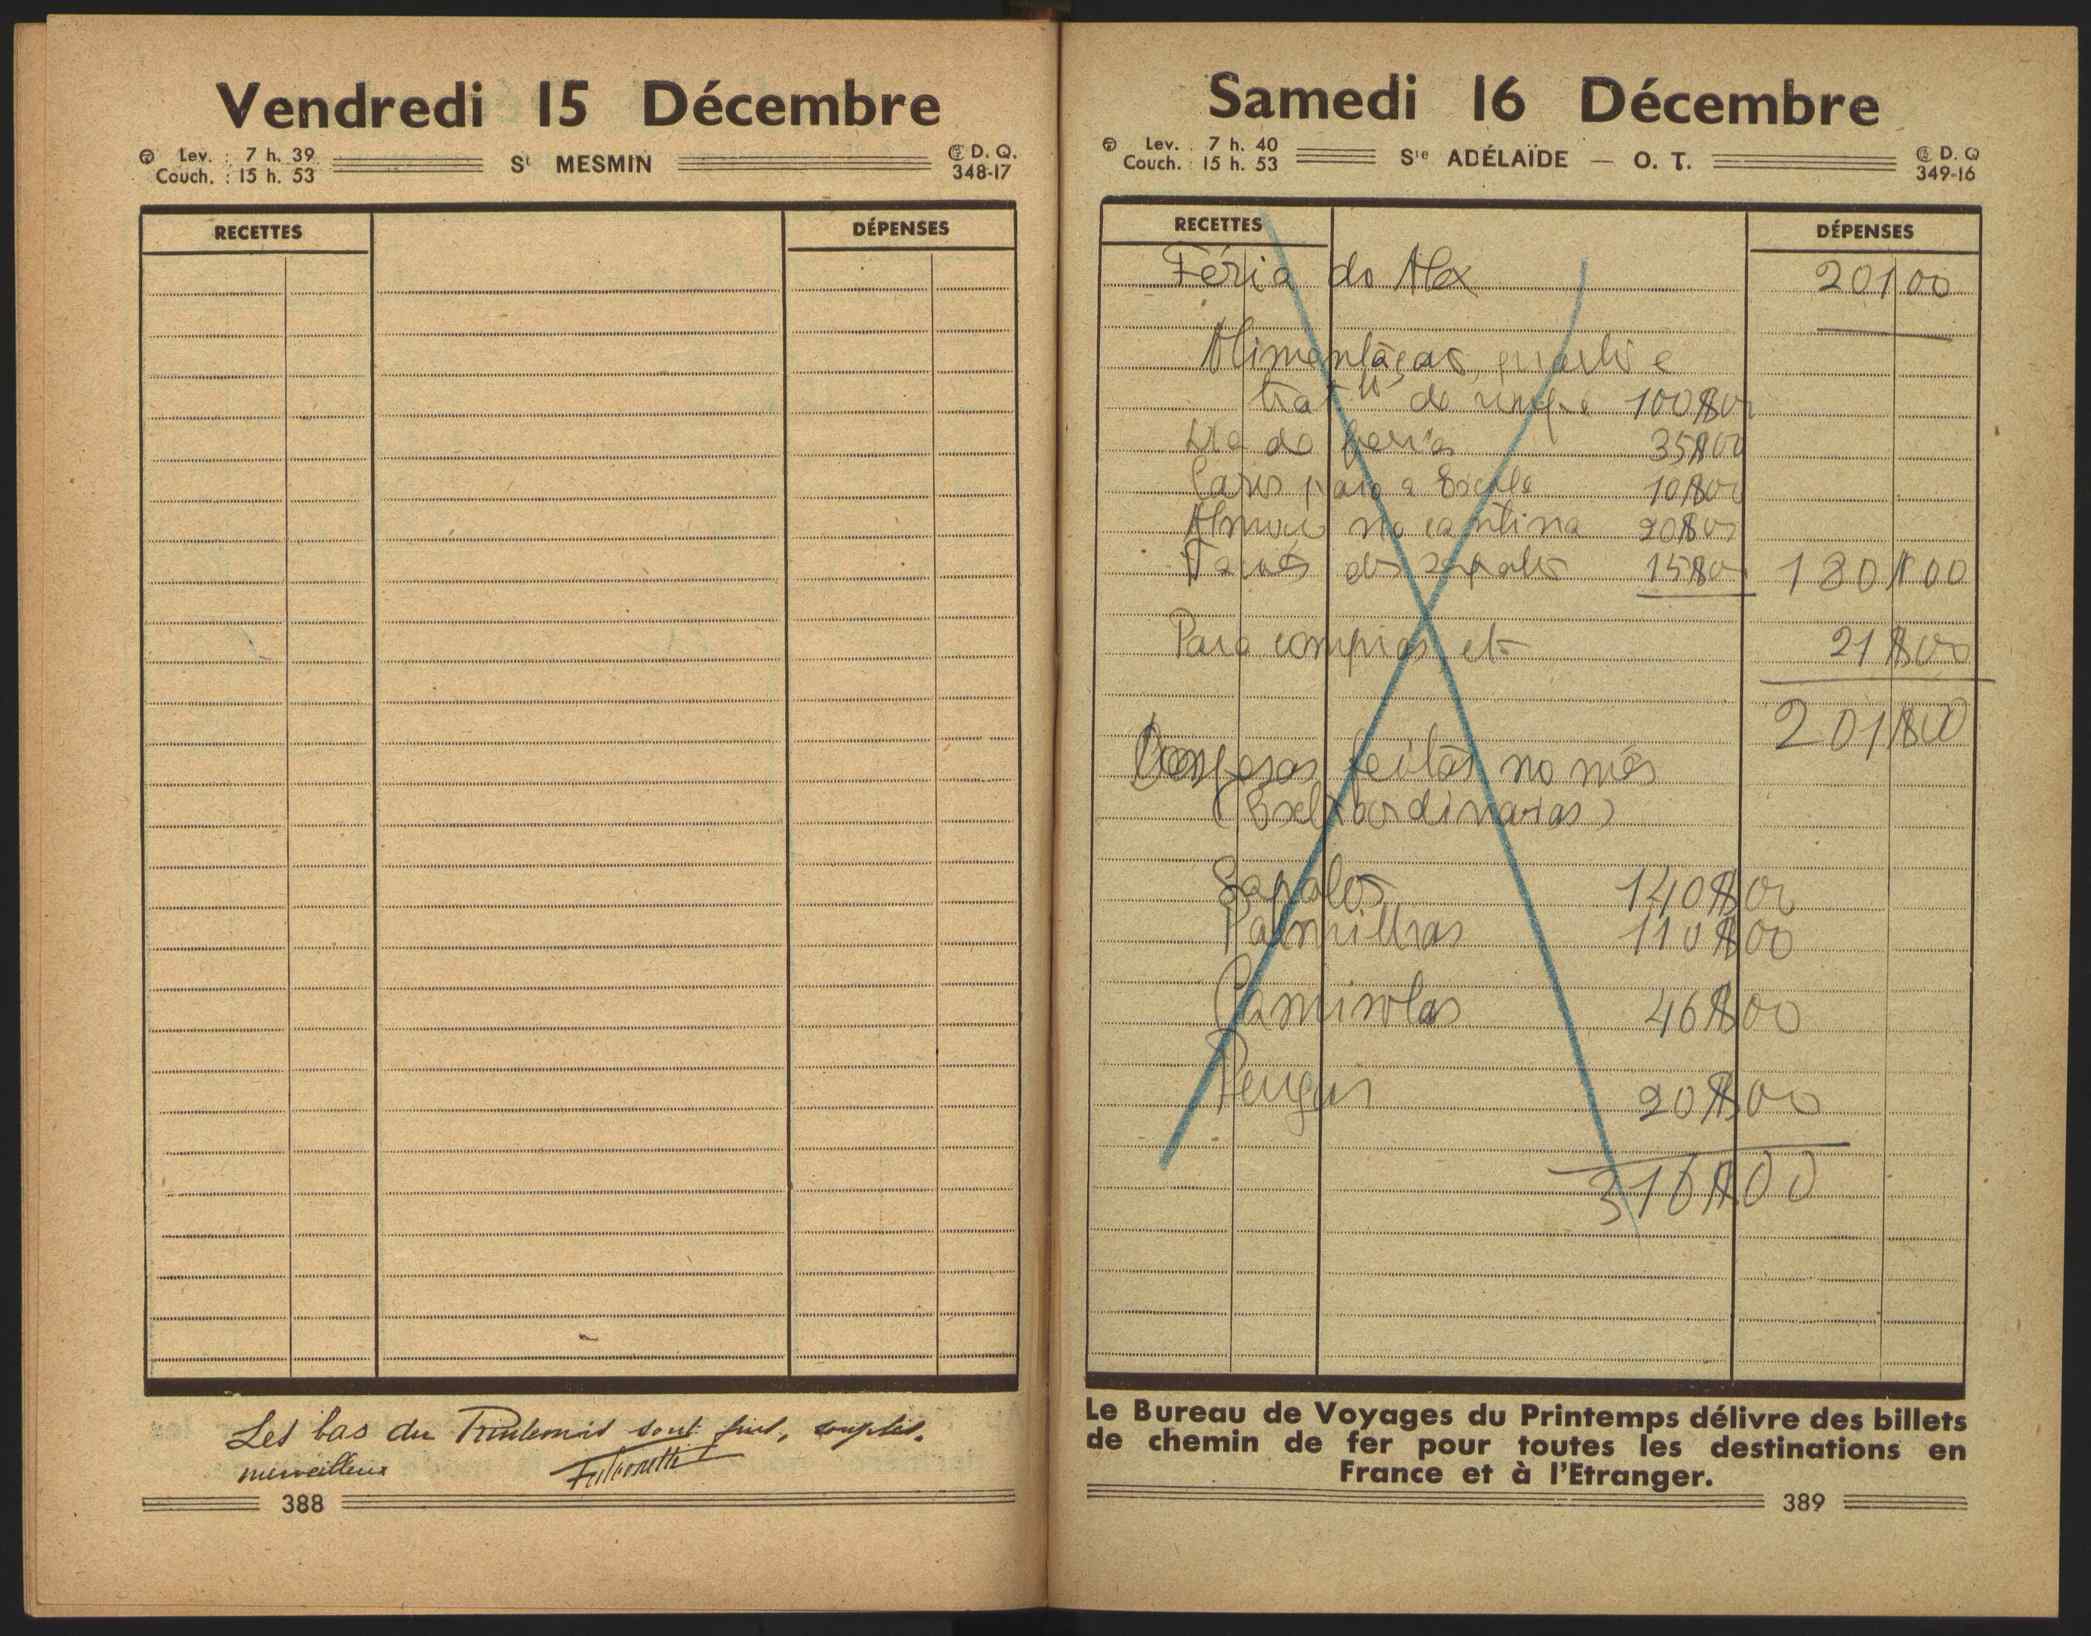 Vendredi 15 Décembre
Lev. : 7 h. 39
Couch. : 15 h. 53
St MESMIN
D. Q.
348-17
RECETTES
DÉPENSES
Les bas du Printemps sont fins, souples,
merveilleux
388
Samedi 16 Décembre
Lev. : 7 h. 40
Couch. : 15 h. 53
Ste ADÉLAÏDE — O. T.
D. Q
349-16
RECETTES
DÉPENSES
Féria do Alex 201$00
Alimentação, quarto e
trat.to de roupa 100$00
35$00
para a Escola 10$00
Almoço na cantina 20$00
dos sapatos 15$00 180$00
Para compras etc 21$00
201$00
Compras feitas no mês
(Extraordinarias)
Sapatos 140$00
Palmilhas 110$00
Camisolas 46$00
Peugas 20$00
316$00
Le Bureau de Voyages du Printemps délivre des billets
de chemin de fer pour toutes les destinations en
France et à l'Etranger.
389